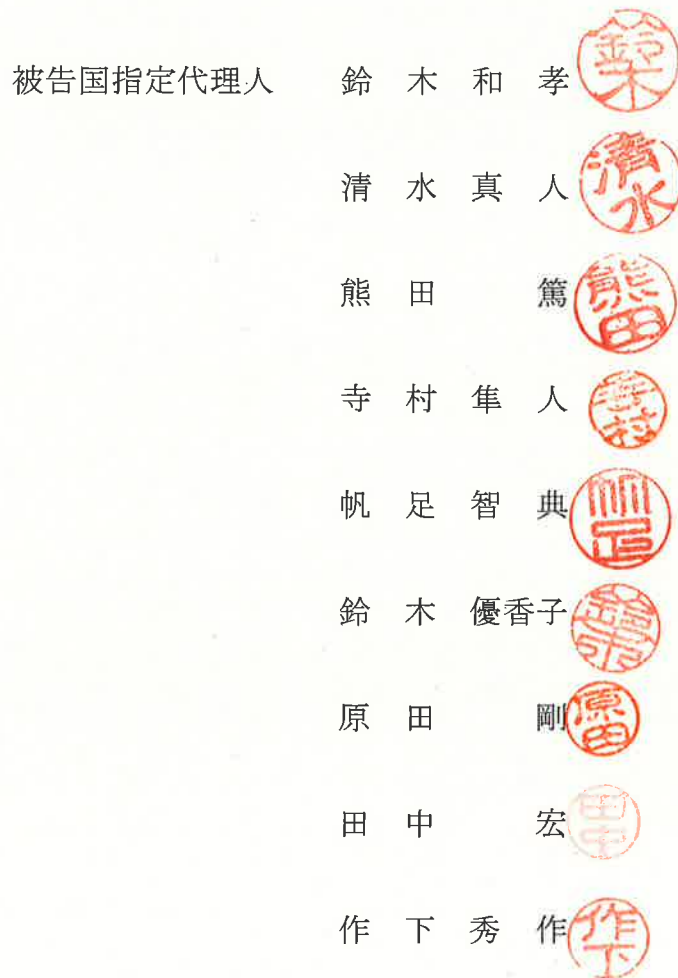 被告国指定代理人 鈴木和孝 鈴木
清水真人 清水
熊田篤 熊田
寺村隼人 寺村
帆足智典 帆足
鈴木優香子 鈴木
原田剛 原田
田中宏 田中
作下秀作 作下